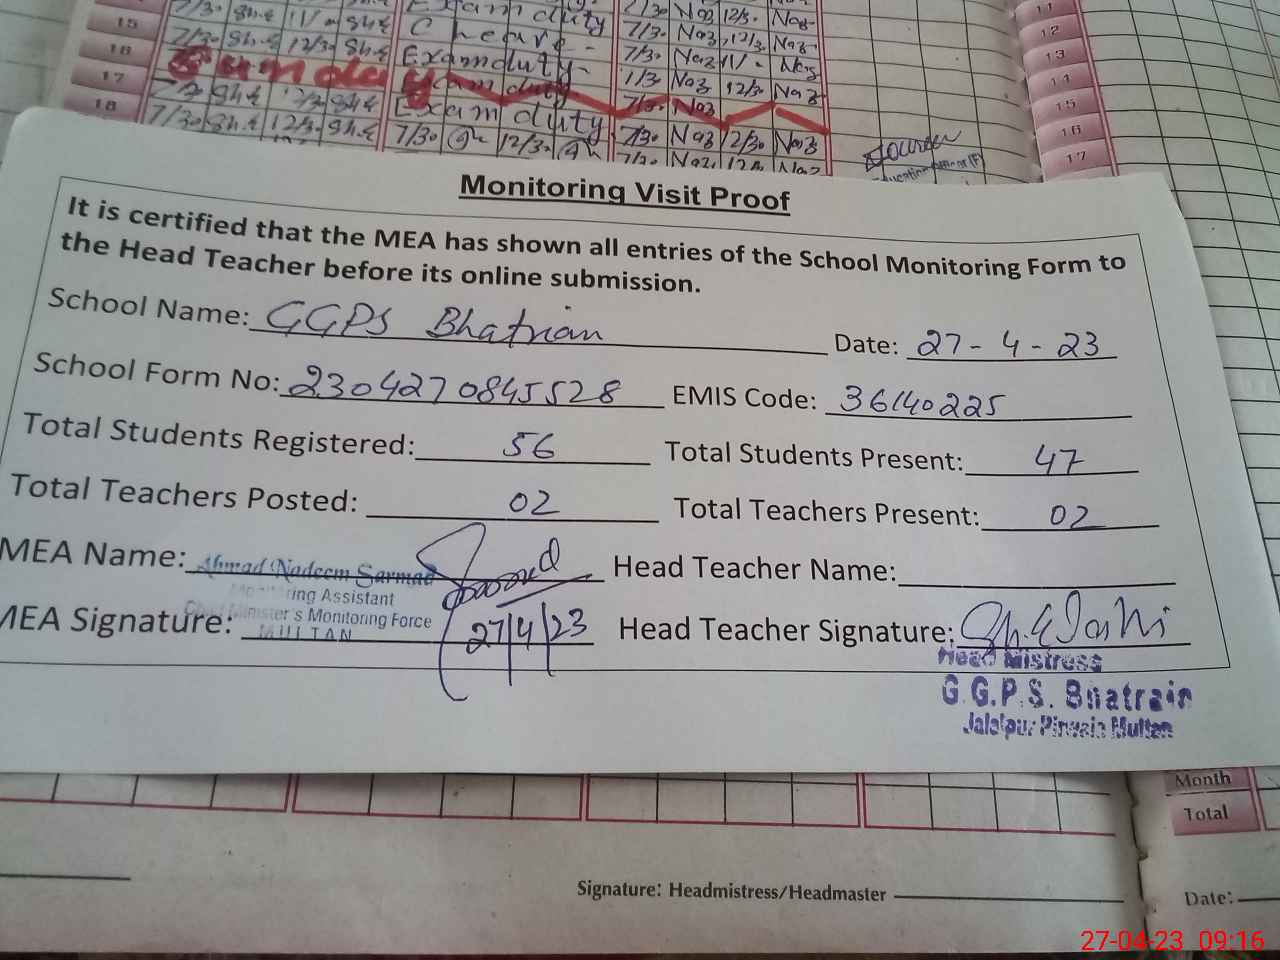 15 7/30 Sh.E 12/30 Sh.E Exam duty 7/30 Naz 12/30 Naz 11
16 7/30 Sh.E 12/30 Sh.E Exam duty 7/30 Naz 12
17 Sunday Exam duty 1/30 Naz 12/30 Naz 13
18 7/30 Sh.E 12/30 Sh.E Exam duty 7/30 Naz 14
7/30 12/30 7/30 Naz 12/30 Naz 15
16
17
Monitoring Visit Proof
It is certified that the MEA has shown all entries of the School Monitoring Form to
the Head Teacher before its online submission.
School Name: GGPS Bhatrian Date: 27-4-23
School Form No: 2304270845528 EMIS Code: 36140225
Total Students Registered: 56 Total Students Present: 47
Total Teachers Posted: 02 Total Teachers Present: 02
MEA Name: Ahmad Nadeem Sarmad Head Teacher Name:
Monitoring Assistant
Chief Minister's Monitoring Force
MEA Signature: MULTAN 27/4/23 Head Teacher Signature:
Head Mistress
G.G.P.S. Bhatrain
Jalalpur Pirwala Multan
Month
Total
Signature: Headmistress/Headmaster Date:
27-04-23 09:16